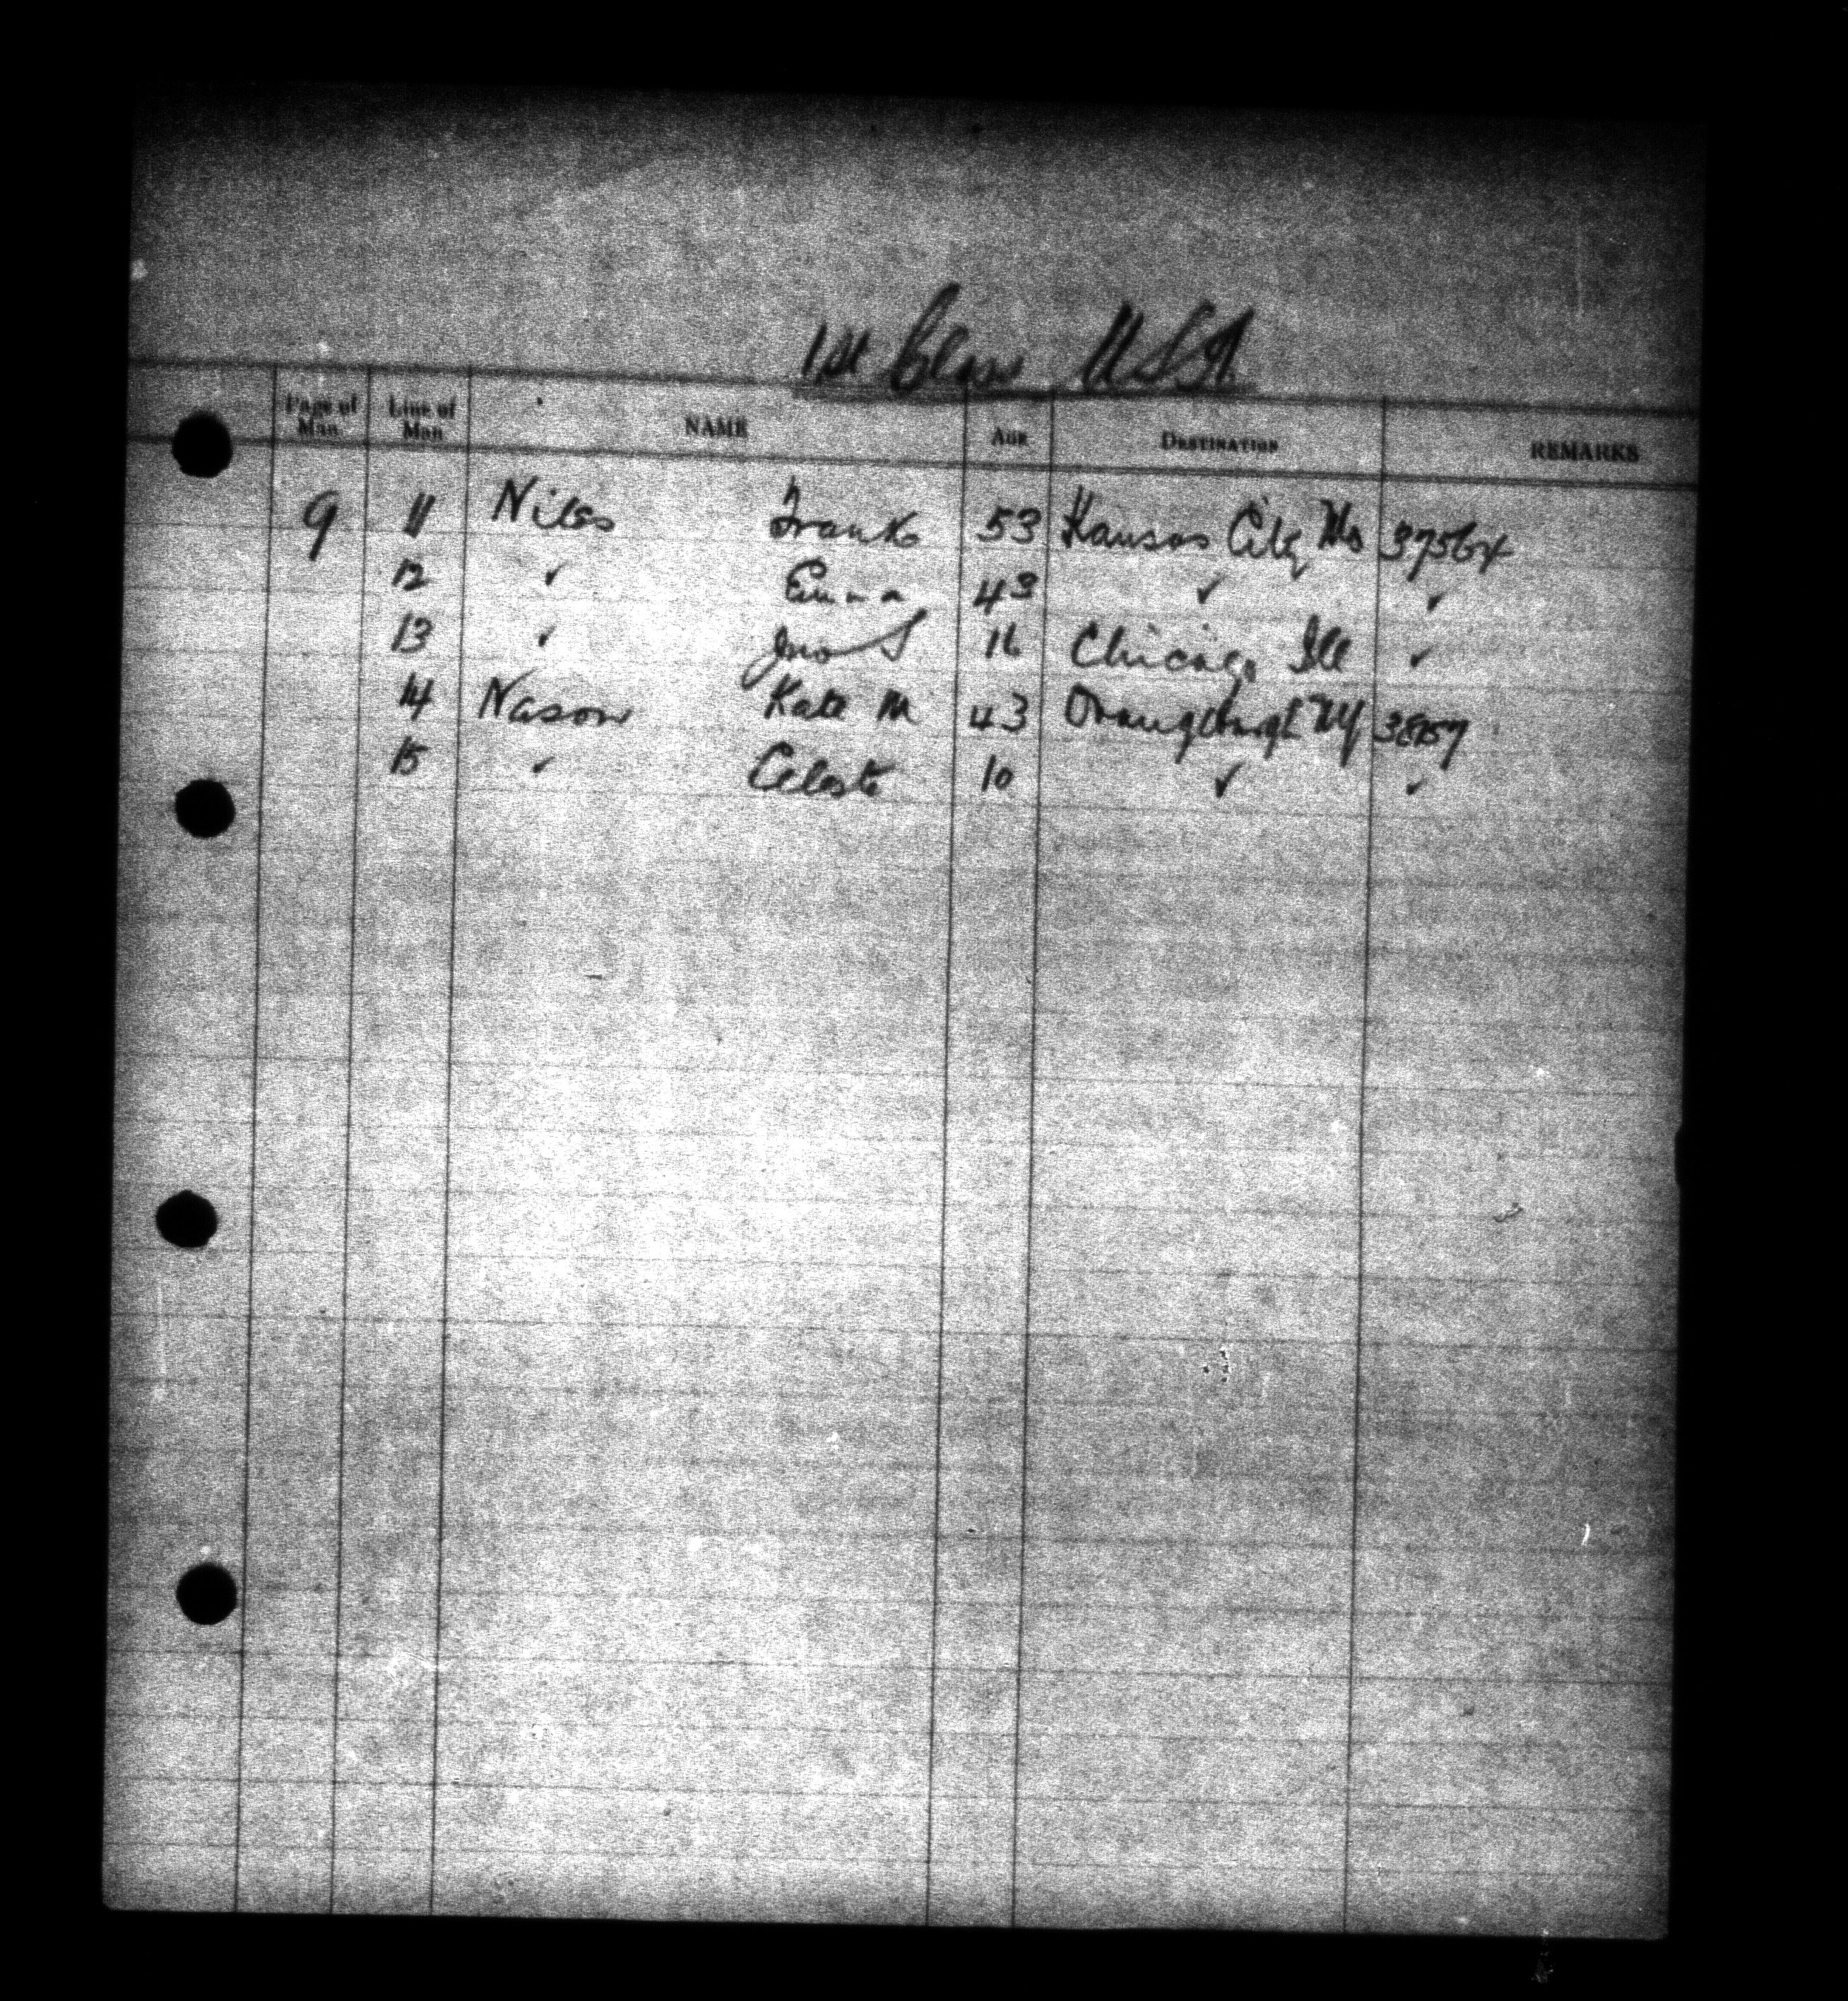 1st Class USA
Page of Man Line of Man NAME AGE DESTINATION REMARKS
9 11 Niles Frank 53 Kansas City Mo 37564
12 ✓ Emma 43 ✓ ✓
13 ✓ Jno S 16 Chicago Ill ✓
14 Nason Kate M 43 Orangeburgh NY
15 ✓ Celeste 10 ✓ ✓